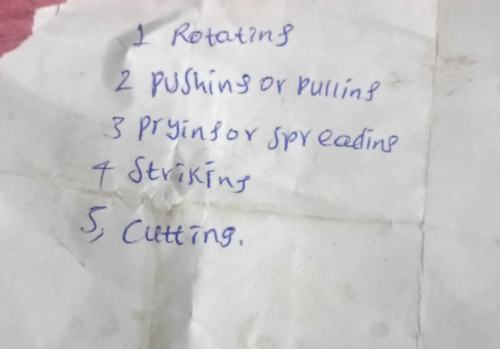 1 Rotating
2 pushing or pulling
3 prying or spreading
4 Striking
5, Cutting.